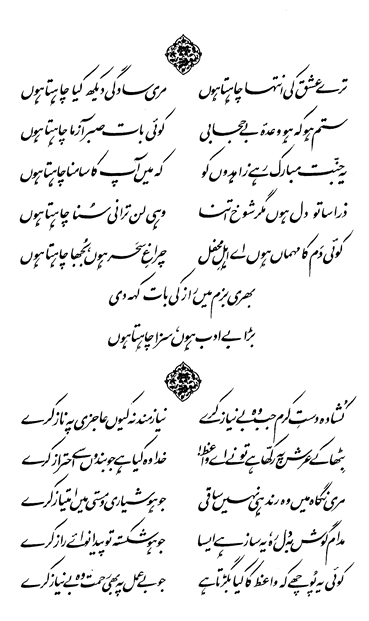 ترے عشق کی انتہا چاہتا ہوں مری سادگی دیکھ کیا چاہتا ہوں
ستم ہو کہ ہو وعدۂ بے حجابی کوئی بات صبر آزما چاہتا ہوں
یہ جنّت مبارک رہے زاہدوں کو کہ میں آپ کا سامنا چاہتا ہوں
ذرا سا تو دل ہوں مگر شوخ اتنا وہی لن ترانی سُنا چاہتا ہوں
کوئی دَم کا مہماں ہوں اے اہلِ محفل چراغِ سَحر ہوں بُجھا چاہتا ہوں
بھری بزم میں راز کی بات کہہ دی
بڑا بے ادب ہوں سزا چاہتا ہوں
کُشادہ دستِ کرم جب وہ بے نیاز کرے نیاز مند نہ کیوں عاجزی پہ ناز کرے
بِٹھا کے عرش پہ رکھا ہے تو نے اے واعظ! خدا وہ کیا ہے جو بندوں سے احتراز کرے
مری نگاہ میں وہ رند ہی نہیں ساقی جو ہوشیاری و مستی میں امتیاز کرے
مدام گوش بہ دل رہ یہ ساز ہے ایسا جو ہو شکستہ تو پیدا نوائے راز کرے
کوئی یہ پُوچھے کہ واعظ کا کیا بگڑتا ہے جو بے عمل پہ بھی رحمت وہ بے نیاز کرے